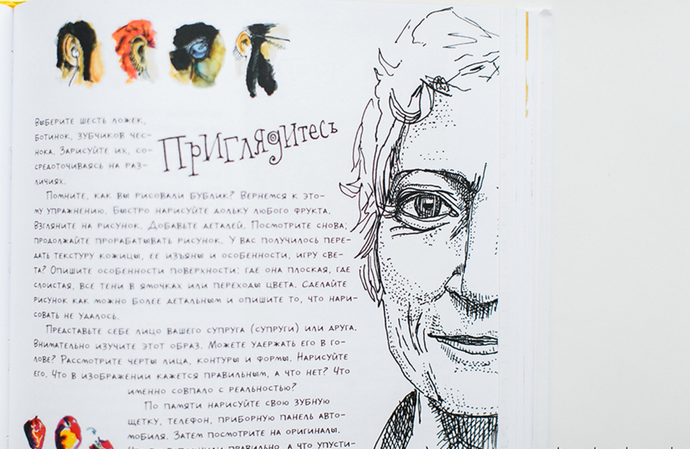 Выберите шесть ложек,
ботинок, зубчиков чес-
нока. Зарисуйте их, со-
средоточиваясь на раз-
личиях.
Приглядитесь
Помните, как вы рисовали бублик? Вернемся к это-
му упражнению. Быстро нарисуйте дольку любого фрукта.
Взгляните на рисунок. Добавьте деталей. Посмотрите снова;
продолжайте прорабатывать рисунок. У вас получилось пере-
дать текстуру кожицы, ее изъяны и особенности, игру све-
та? Опишите особенности поверхности: где она плоская, где
слоистая, все тени в ямочках или переходы цвета. Сделайте
рисунок как можно более детальным и опишите то, что нари-
совать не удалось.
Представьте себе лицо вашего супруга (супруги) или друга.
Внимательно изучите этот образ. Можете удержать его в го-
лове? Рассмотрите черты лица, контуры и формы. Нарисуйте
его. Что в изображении кажется правильным, а что нет? Что
именно совпало с реальностью?
По памяти нарисуйте свою зубную
щетку, телефон, приборную панель авто-
мобиля. Затем посмотрите на оригиналы.
правильно, а что упусти-